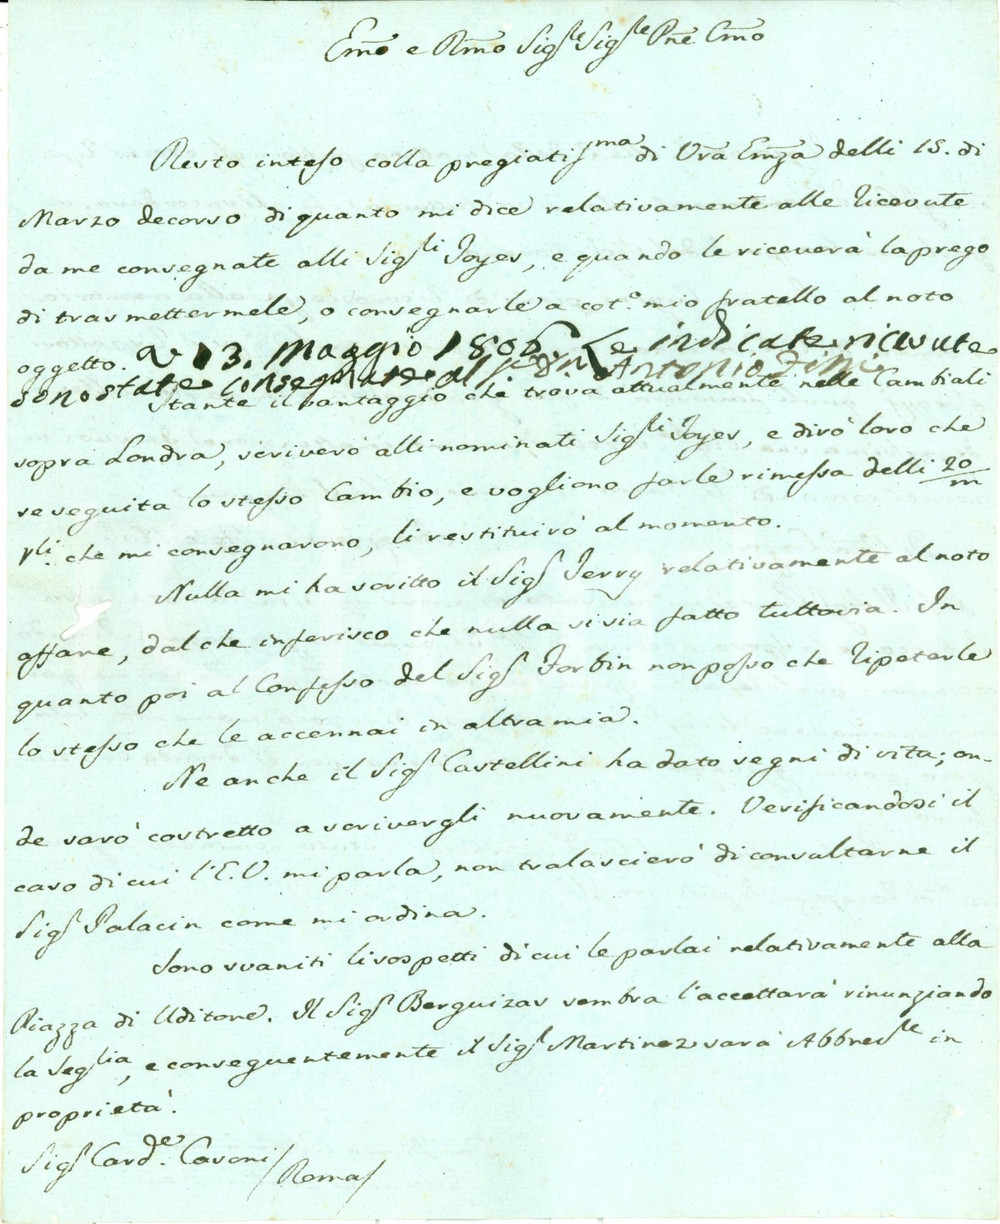 Emo e Rmo Sigre Sigre Pne Cmo
Resto inteso colla pregiatissma di Vra Emza delli 15. di
Marzo decorso di quanto mi dice relativamente alle ricevute
da me consegnate alli Sigli Joyes, e quando le riceverà la prego
di trasmettermele, o consegnarle a coto. mio fratello al noto
oggetto. 13. Maggio 1806 Le indicate ricevute
sono state consegnate al Antonio Zini
Stante il vantaggio che trova attualmente nelle Cambiali
sopra Londra, scriverò alli nominati Sigli Joyes, e dirò loro che
se seguita lo stesso Cambio, e vogliono farle rimessa delli 20/m
che mi consegnarono, li restituirò al momento.
Nulla mi ha scritto il Sigr Terry relativamente al noto
affare, dal che inferisco che nulla si sia fatto tuttavia. In
quanto poi al Confesso del Sigr Forbin non posso che ripeterle
lo stesso che le accennai in altra mia.
Ne anche il Sigr Castellini ha dato segni di vita; on-
de sarò costretto a scrivergli nuovamente. Verificandosi il
caso di cui l'E.V. mi parla, non tralascierò di consultarne il
Sigr Palacin come mi ordina.
Sono svaniti li sospetti di cui le parlai relativamente alla
Piazza di Uditore. Il Sigr Berguizas sembra l'accettarà rinunziando
la Seglia, e conseguentemente il Sigr Martinez sarà Abbre in
proprietà.
Sigr Cardle. Cavoni / Roma /